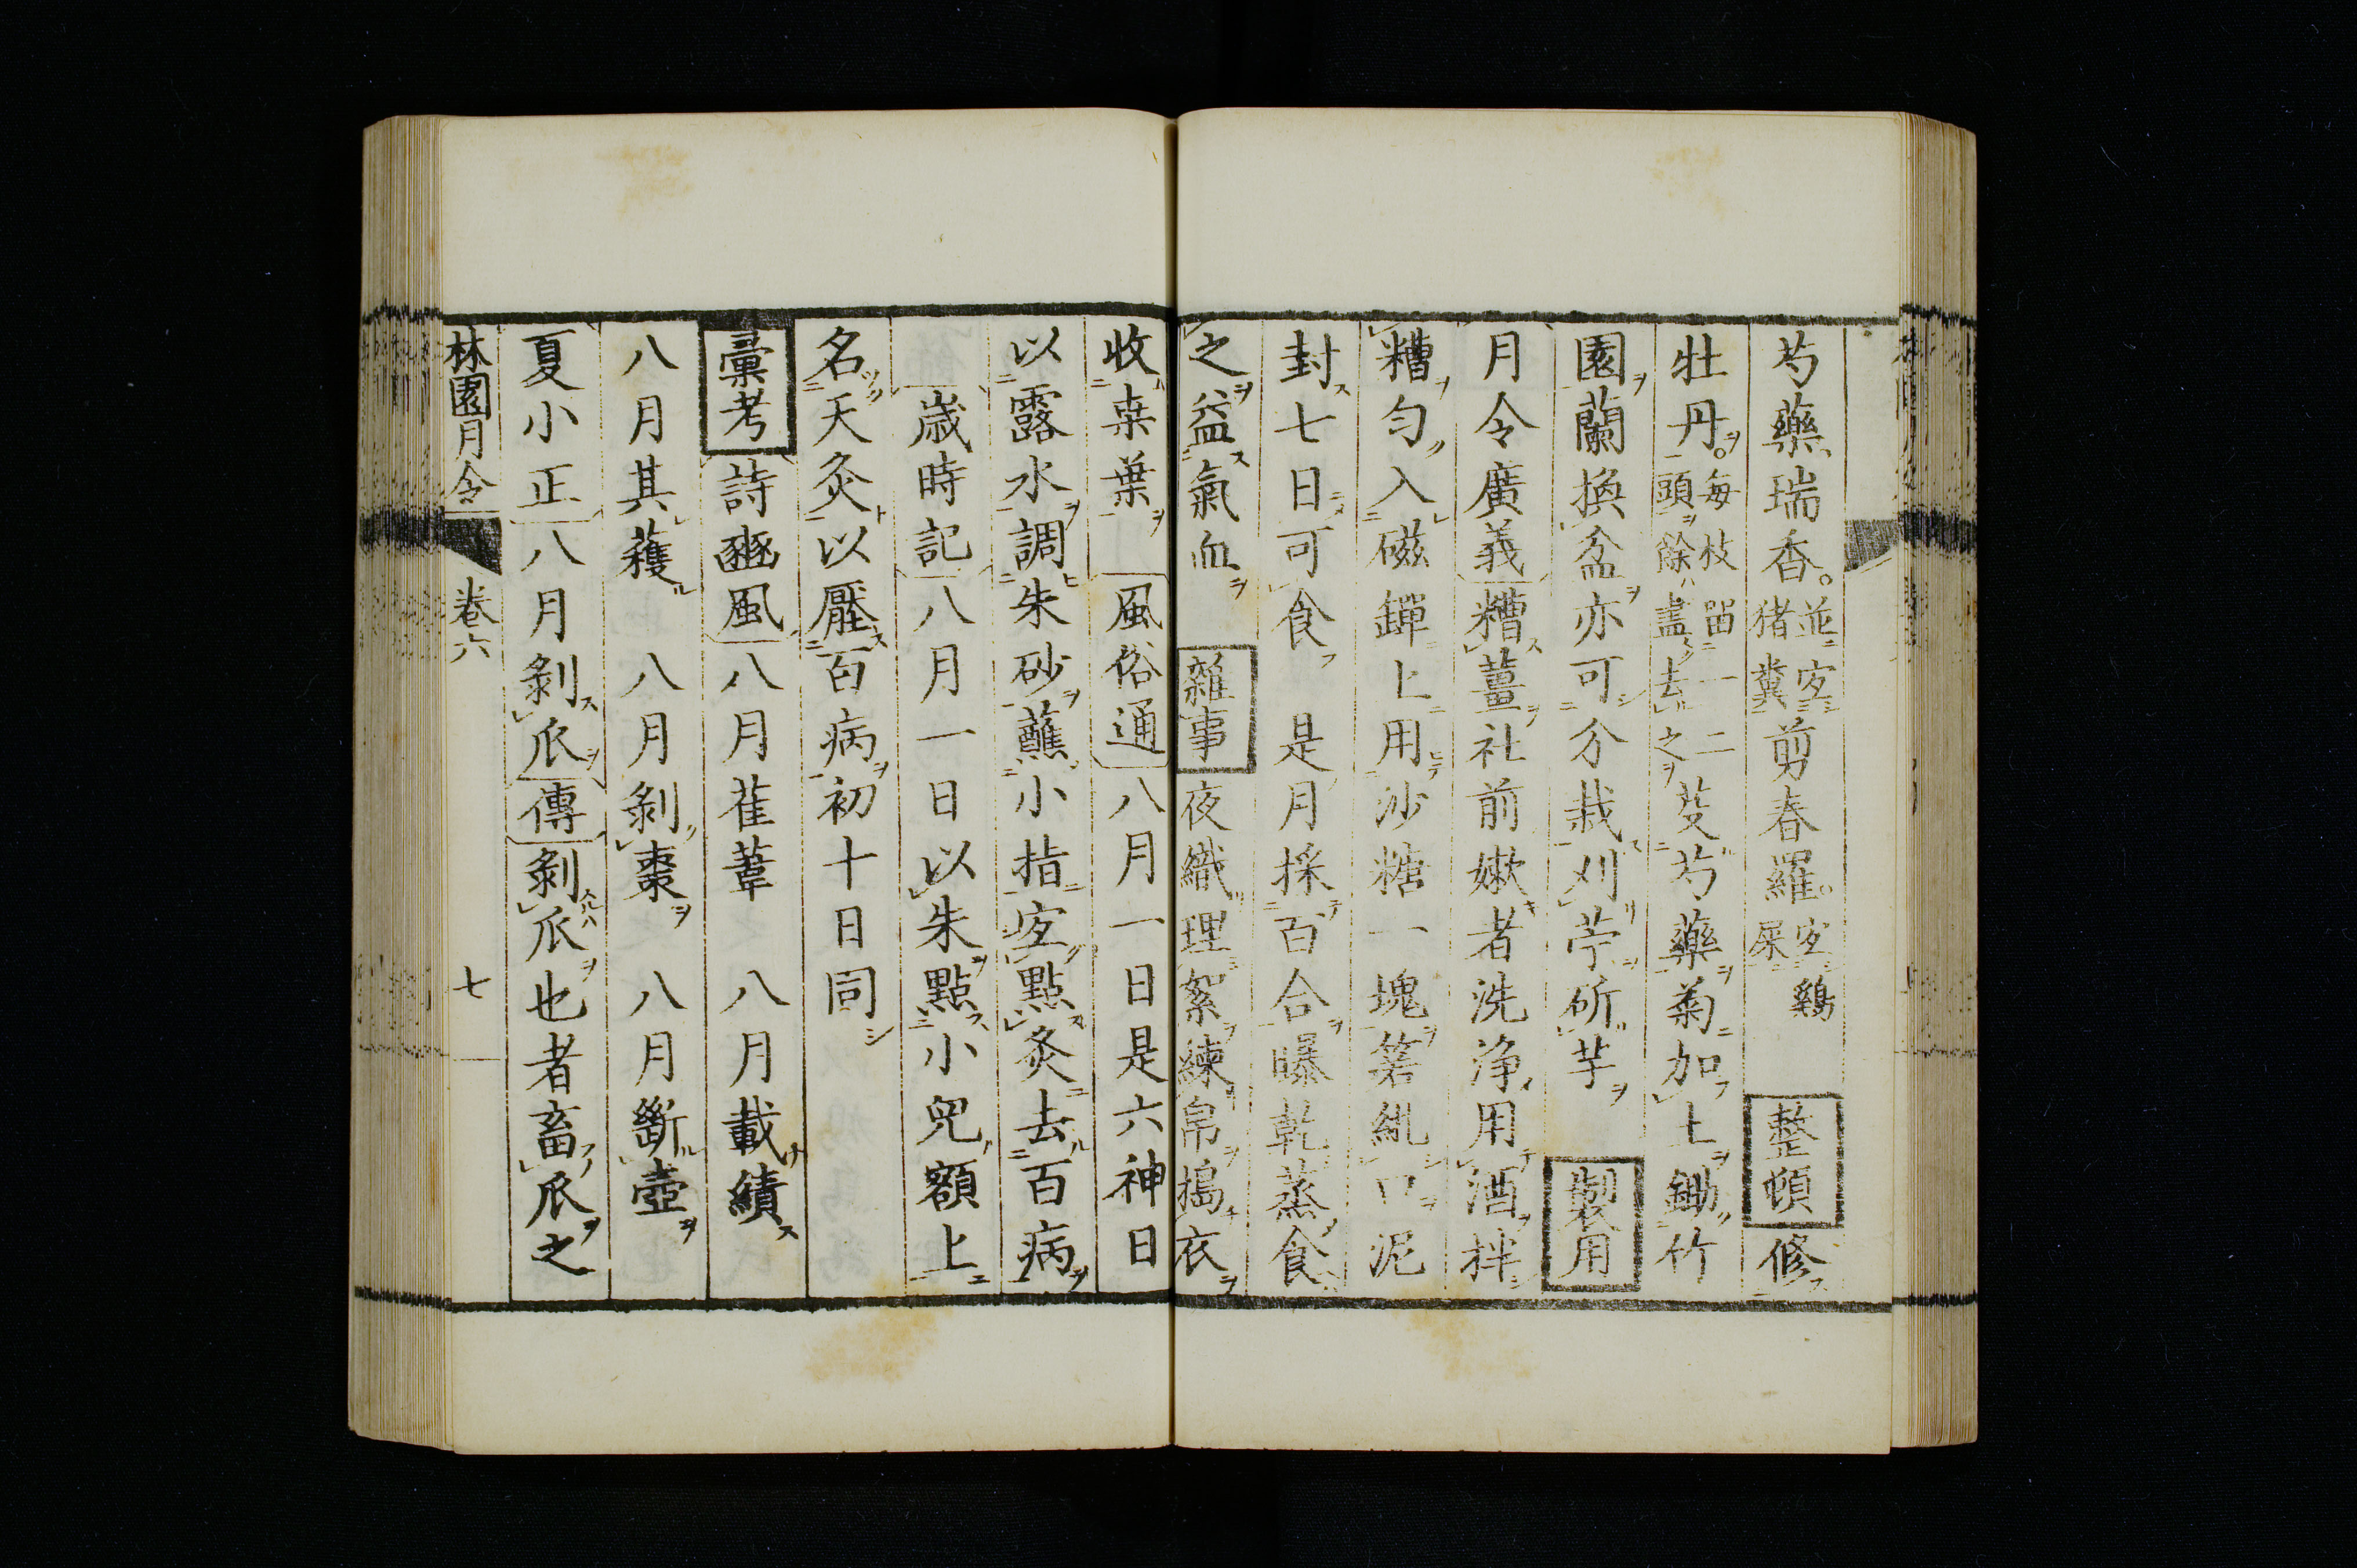 芍藥瑞香。並宜猪糞剪春羅。宜鷄屎　整頓修
牡丹。每枝留一二頭餘盡去之芟芍藥菊加土鋤竹
園蘭換盆亦可分栽刈苧斫芋　製用
月令廣義糟薑社前嫩者洗淨用酒拌
糟勻入磁罈上用沙糖一塊箬紮口泥
封七日可食　是月採百合曝乾蒸食
之益氣血　雜事夜織理絮練帛搗衣
收枽葉　風俗通八月一日是六神日
以露水調朱砂蘸小指宜點灸去百病
歲時記八月一日以朱點小兒額上
名天灸以壓百病初十日同
彙考詩豳風八月萑葦　八月載績
八月其穫　八月剝棗　八月斷壺
夏小正八月剝瓜傳剝瓜也者畜瓜之
林園月令　卷六　七